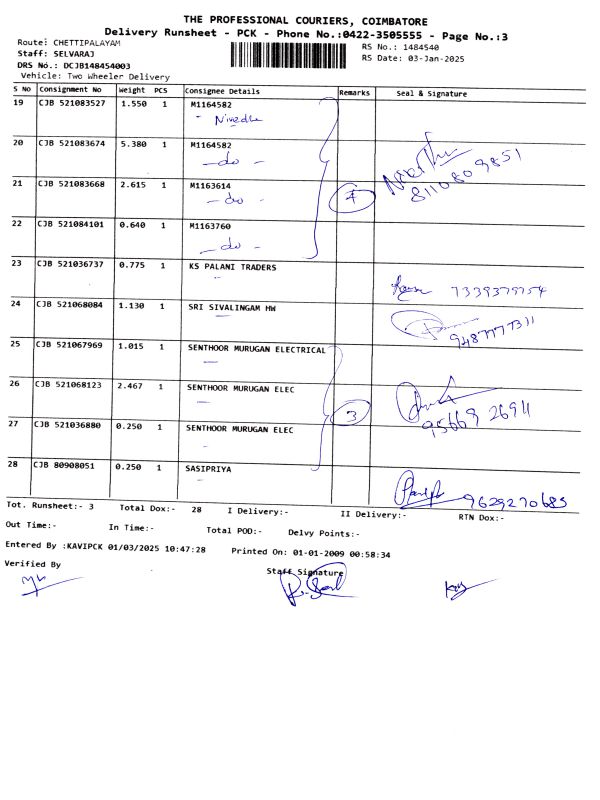 THE PROFESSIONAL COURIERS, COIMBATORE
Delivery Runsheet - PCK - Phone No.:0422-3505555 - Page No.:3
Route: CHETTIPALAYAM
RS No.: 1484540
Staff: SELVARAJ
RS Date: 03-Jan-2025
DRS No.: DCJB148454003
Vehicle: Two Wheeler Delivery
S No Consignment No Weight PCS Consignee Details Remarks Seal & Signature
19 CJB 521083527 1.550 1 M1164582
- Nivedha
20 CJB 521083674 5.380 1 M1164582
- do -
21 CJB 521083668 2.615 1 M1163614
- do -
4
8110809851
22 CJB 521084101 0.640 1 M1163760
- do -
23 CJB 521036737 0.775 1 KS PALANI TRADERS
7339379754
24 CJB 521068084 1.130 1 SRI SIVALINGAM HW
9487777311
25 CJB 521067969 1.015 1 SENTHOOR MURUGAN ELECTRICAL
26 CJB 521068123 2.467 1 SENTHOOR MURUGAN ELEC
3
95668 26911
27 CJB 521036880 0.250 1 SENTHOOR MURUGAN ELEC
28 CJB 80908051 0.250 1 SASIPRIYA
9629270685
Tot. Runsheet:- 3 Total Dox:- 28 I Delivery:- II Delivery:- RTN Dox:-
Out Time:- In Time:- Total POD:- Delvy Points:-
Entered By :KAVIPCK 01/03/2025 10:47:28 Printed On: 01-01-2009 00:58:34
Verified By
Staff Signature